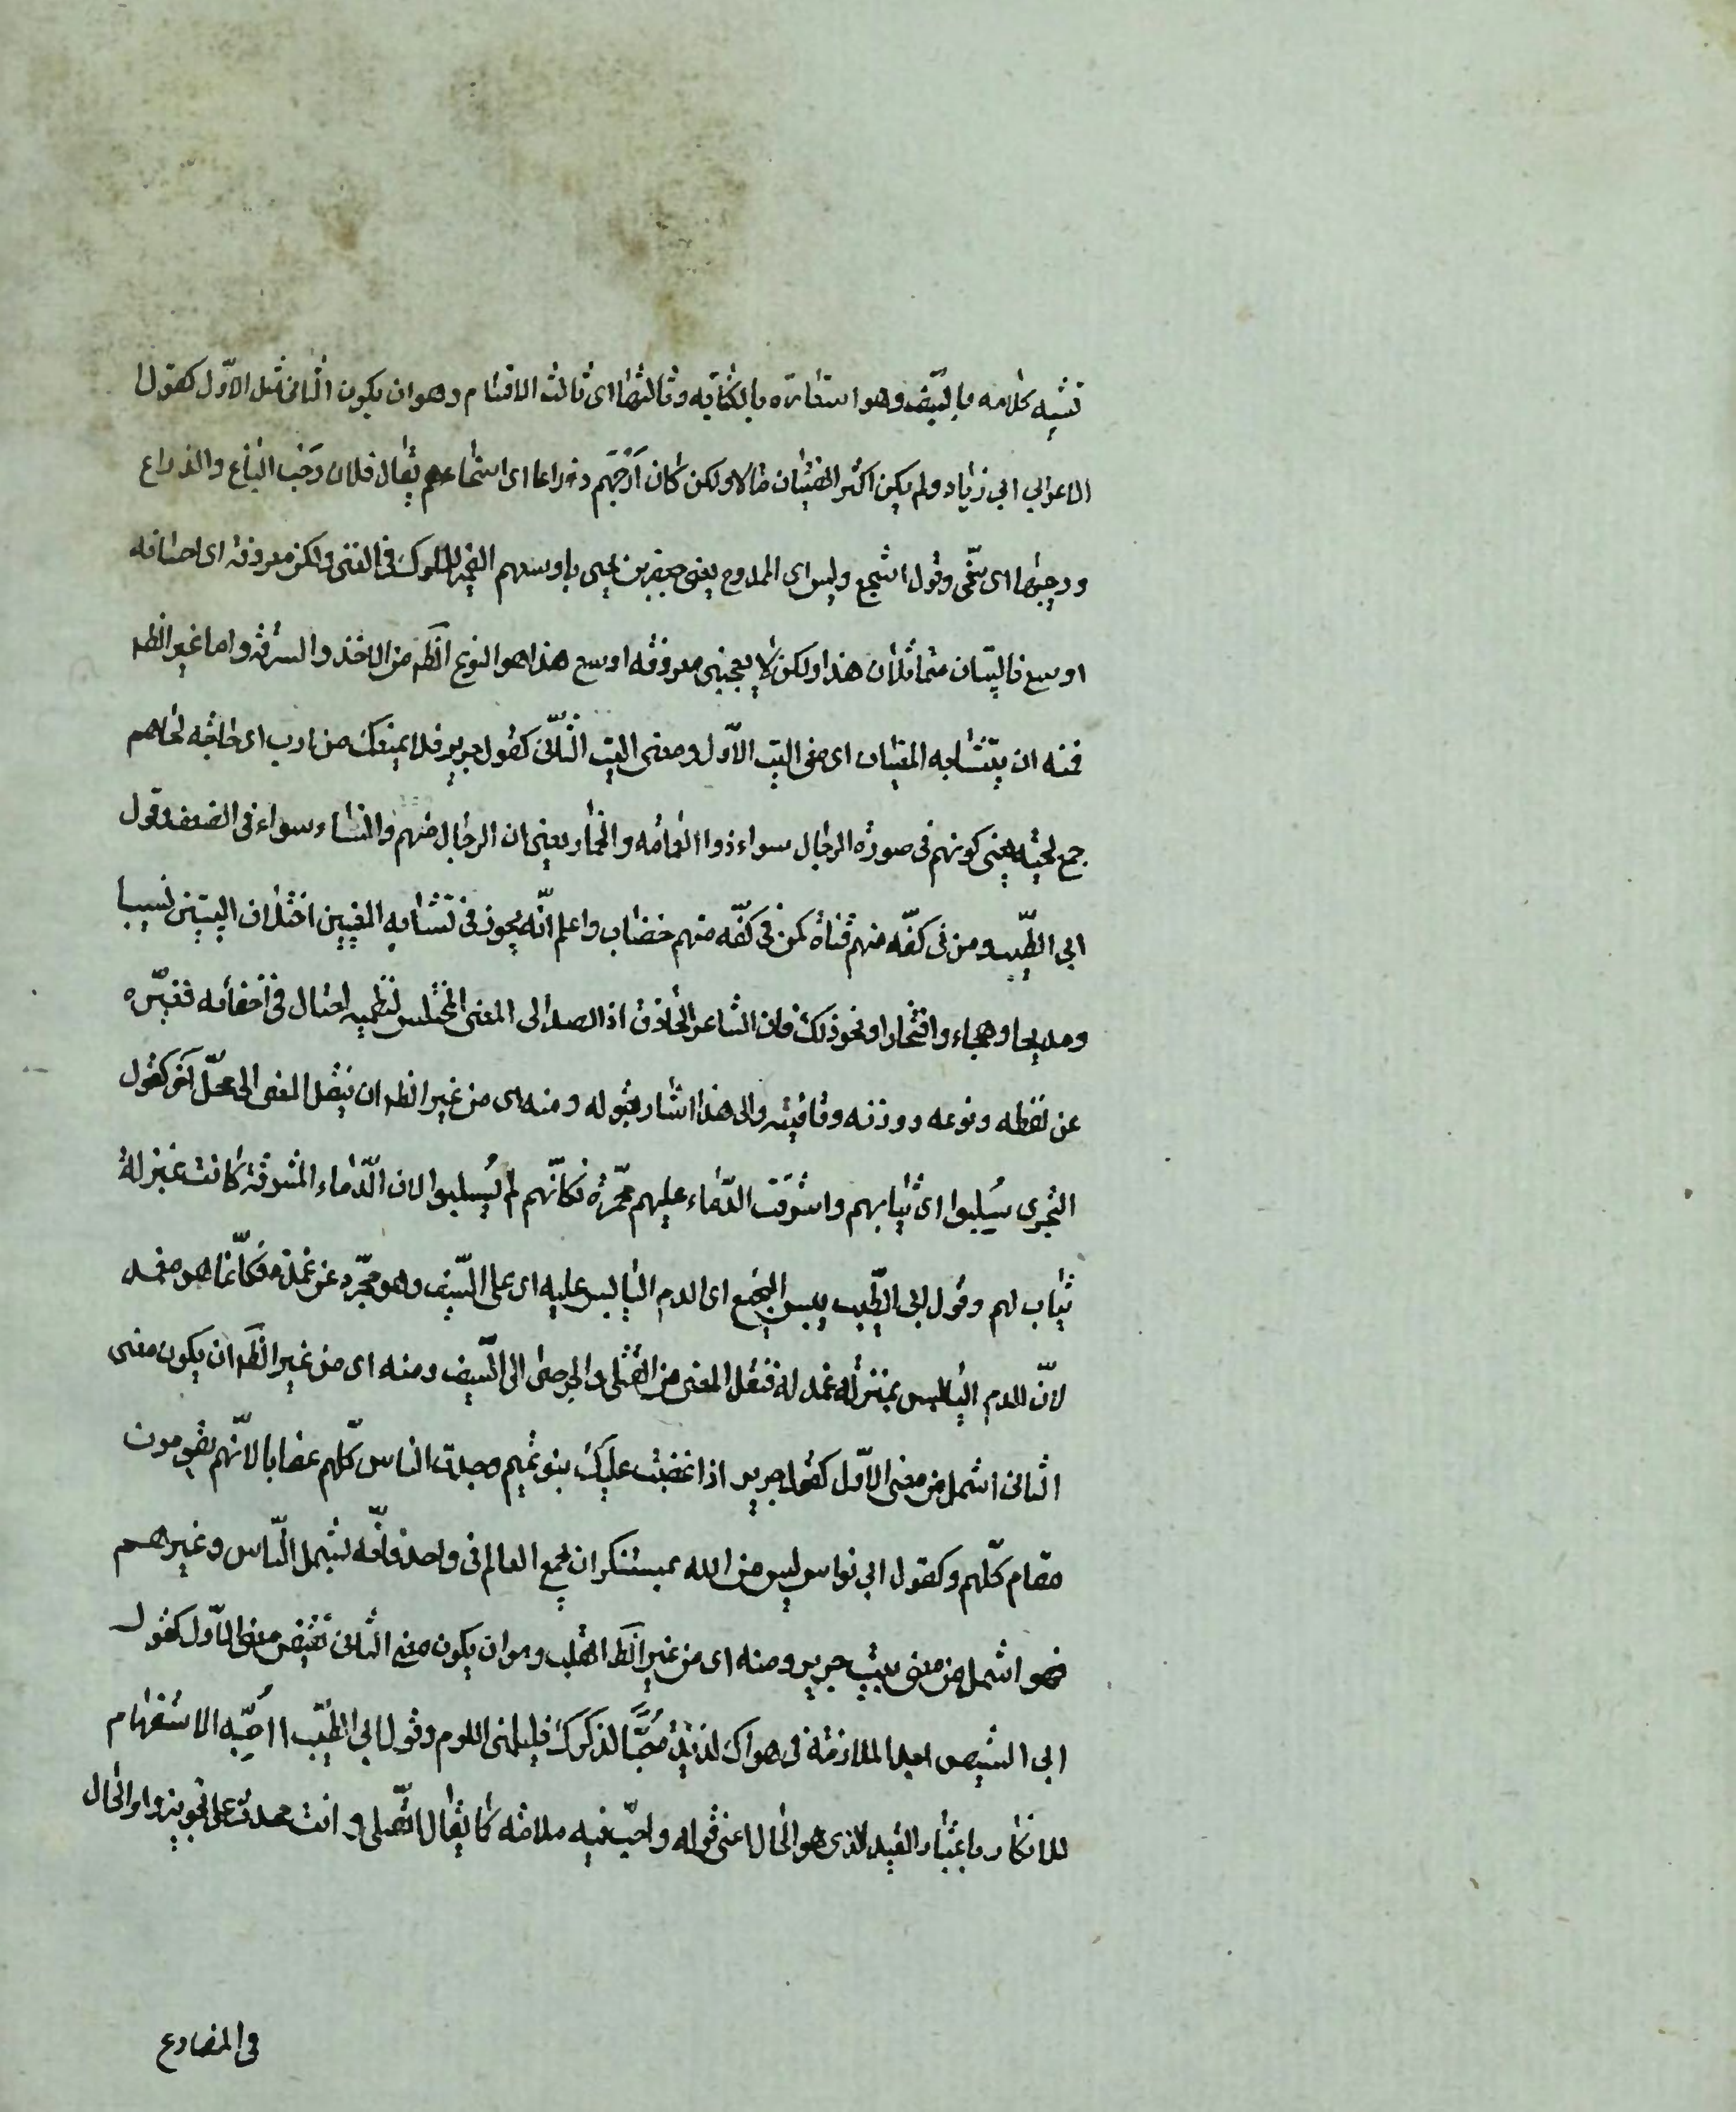 تشبيه كلامه بالسيف وهو استعارة بالكناية وثالثها اى ثالث الاقسام وهو ان يكون الثانى مثل الاوّل كقول
الاعرابي ابي زياد ولم يكن اكثر الفتيان مالا ولكن كان اَرْحَبَهم ذراعا اى اسخاهم يقال فلان رَحْب الباع والذراع
ورحيبها اى سخّى وقول اشجع وليس اى الممدوح يعنى جعفر بن يحيى باوسعهم الضمير للملوك فى الغنى ولكن معروفه اى احسانه
اوسع فالبيتان متماثلان هذا ولكن لا يعجبنى معروفه اوسع هذا هو النوع الظّهر من الاخذ والسرقة واما غير الظهر
فمنه ان يتشابه المعنيان اى معنى البيت الاوّل ومعنى البيت الثّانى كقول جرير فلا يمنعك من ارب اى حاجة لحاهم
جمع لحية يعنى كونهم فى صورة الرجال سواء ذوا العمامة والخمار يعنى ان الرجال منهم والنساء سواء فى الضعف وقول
ابي الطّيب ومن فى كفّه منهم قناة كمن فى كفّه منهم خضاب واعلم انّه يجوز فى تشابه المعنيين اختلاف البيتين نسيبا
ومديحا وهجاء وافتخارا ونحو ذلك فان الشاعر الحاذق اذا قصد الى المعنى المختلس لنظمه احتال فى اخفائه فغيّره
عن لفظه ونوعه ووزنه وقافيته والى هذا اشار بقوله ومنه اى من غير الظهر ان ينقل المعنى الى محلّ آخر كقول
البحترى سُلِبوا اى ثيابهم واشرقت الدّماء عليهم محمّرة فكانّهم لم يُسلبوا لان الدّماء المشرقة كانت بمنزلة
ثياب لهم وقول ابى الطّيب يبس النجيع اى الدم اليابس عليه اى على السّيف وهو مجرّد عن غمده فكانّما هو مغمد
لانّ الدم اليابس بمنزلة غمد له فنقل المعنى من القتلى والجرحى الى السّيف ومنه اى من غير الظهر ان يكون معنى
الثانى اشمل من معنى الاوّل كقول جرير اذا غضبت عليك بنو تميم وجدت الناس كلّهم غضابا لانّهم يقومون
مقام كلّهم وكقول ابي نواس ليس من الله بمستنكر ان يجمع العالم فى واحد فانّه يشمل النّاس وغيرهم
فهو اشمل من معنى بيت جرير ومنه اى من غير الظهر القلب وهو ان يكون معنى الثانى نقيض معنى الاوّل كقول
ابي الشيص اجد الملامة فى هواك لذيذة حُبًّا لذكرك فليلمنى اللوم وقول ابي الطيّب أاُحِبّه الاستفهام
للانكار باعتبار القيد الذى هو الحال اعنى قوله واحبّ فيه ملامة كما يقال اتصلى وانت محدث على تجويز واو الحال
فى المضارع